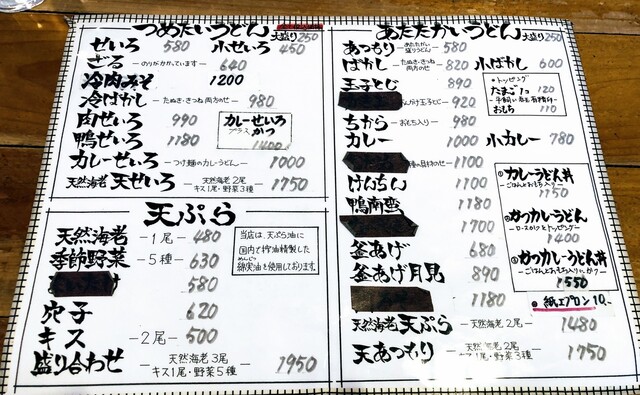 つめたいうどん 大盛り250
せいろ 580 小せいろ 450
ざる -のりがかかっています- 640
冷肉みそ 1200
冷ばかし -たぬき・きつね両方のせ- 980
肉せいろ 990
鴨せいろ 1180
カレーせいろ
プラス かつ
1400
カレーせいろ -つけ麺のカレーうどん- 1000
天然海老 天せいろ 天然海老 2尾 キス1尾・野菜3種 1750
天ぷら
天然海老 -1尾- 480
季節野菜 -5種- 630
580
穴子 620
キス -2尾- 500
盛り合わせ 天然海老3尾 キス1尾・野菜5種 1950
当店は、天ぷら油に
国内で搾油精製した
綿実油を使用しております。
めんじつ
あたたかいうどん 大盛り250
あつもり -あたたかい盛りうどん- 580
ばかし -たぬき・きつね両方のせ- 820 小ばかし 600
玉子とじ 890
玉子とじ- 920
ちから -おもち入り- 980
カレー 1000 小カレー 780
1100
けんちん 1100
鴨南蛮 1180
1700
釜あげ 680
釜あげ月見 890
1180
天然海老 天ぷら -天然海老 2尾- 1480
天あつもり 天然海老 2尾 キス1尾・野菜3種 1750
・トッピング
たまご1コ 120
おもち 110
①カレーうどん丼
-ごはんとおもち入り-
1150
②かつカレーうどん
-ロースかつトッピング-
1400
③かつカレーうどん丼
-ごはんとおもち入りにかつ-
1550
●紙エプロン10.-